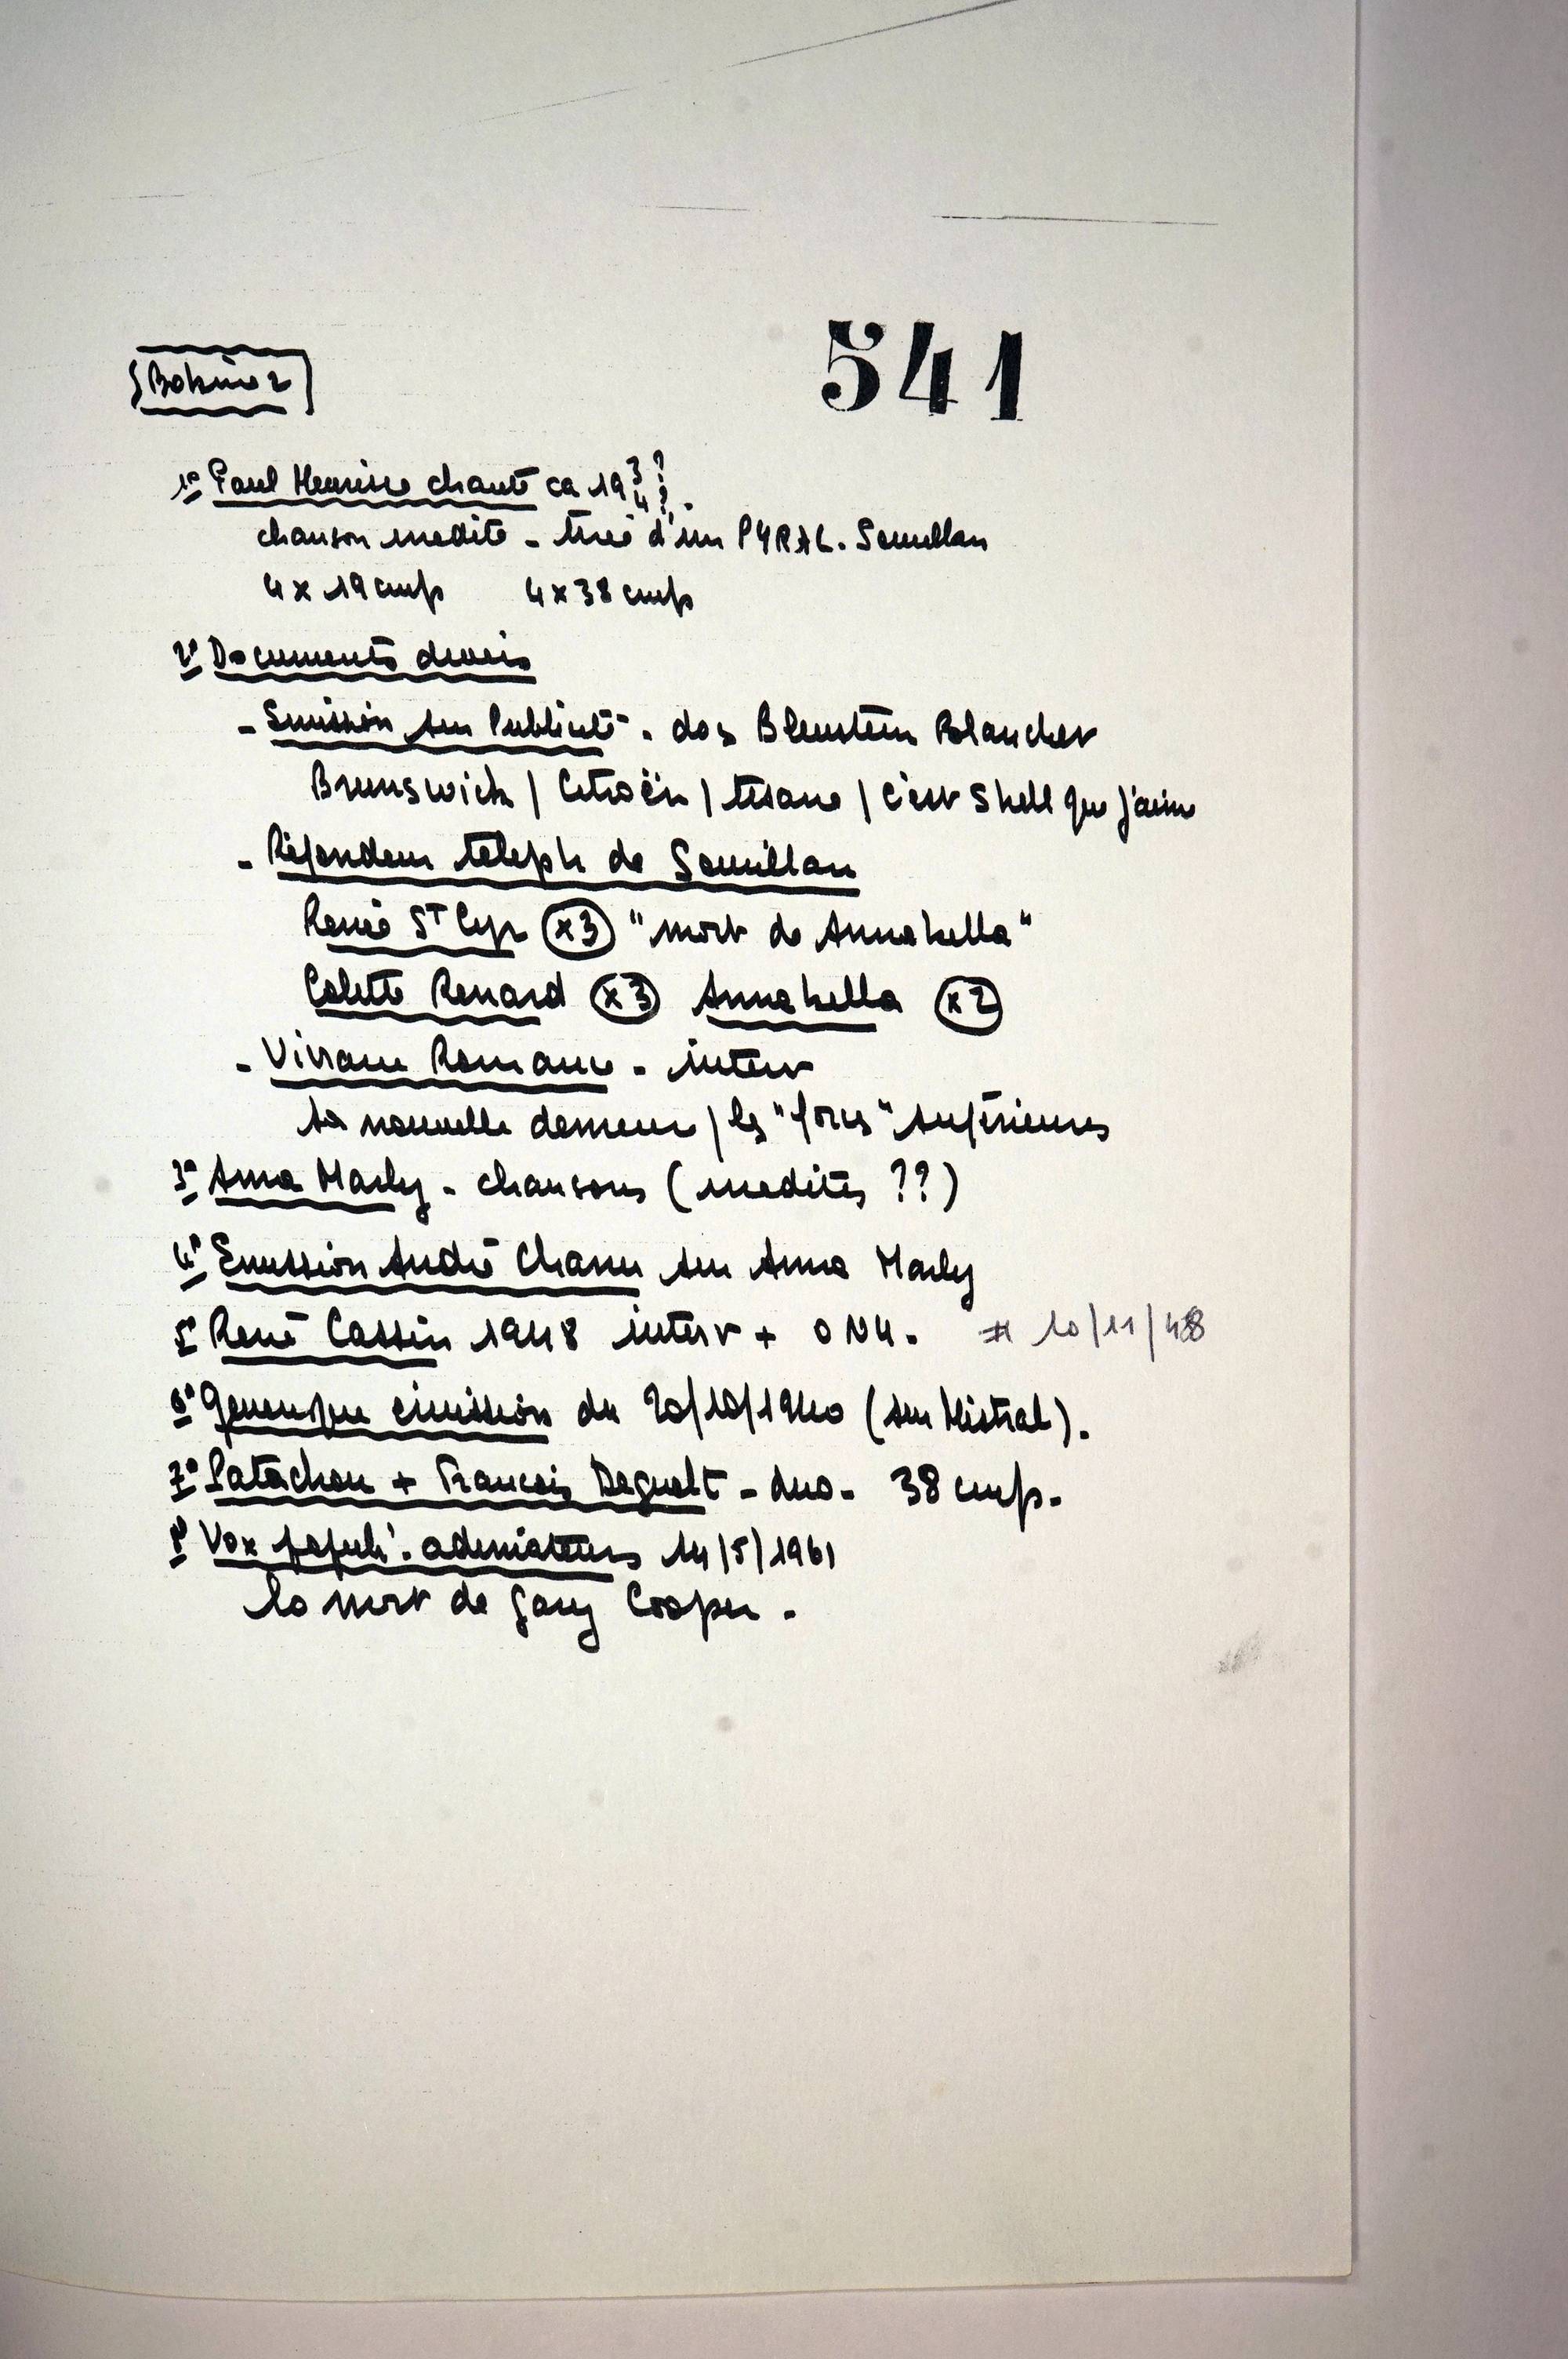 541
Bobino 2
1º Paul Meurisse chante ca 19 3? 4?.
chanson inedite - tirée d'un PYRAL. Soumillan
4 x 19 cm/s 4 x 38 cm/s
2º Documents divers
- Emission sur Publicité. dos Bleustein Blanchet
Brunswick / Citroën / tisane / c'est Shell que j'aime
- Répondeur téléph de Soumillan
Renée St Cyr x3 "mort de Annabella"
Colette Renard x3 Annabella x2
- Viviane Romance - interv
sa nouvelle demeure / les "forces" supérieures
3º Anna Marly - chansons (inedites ??)
4º Emission André Chanu sur Anna Marly
5º René Cassin 1948 interv + ONU. # 10/11/48
6º Generique emission du 20/10/1940 (sur Mistral).
7º Patachou + Francois Deguelt - duo - 38 cm/s.
8º Vox populi. admirateurs 14/5/1961
la mort de Gary Cooper.